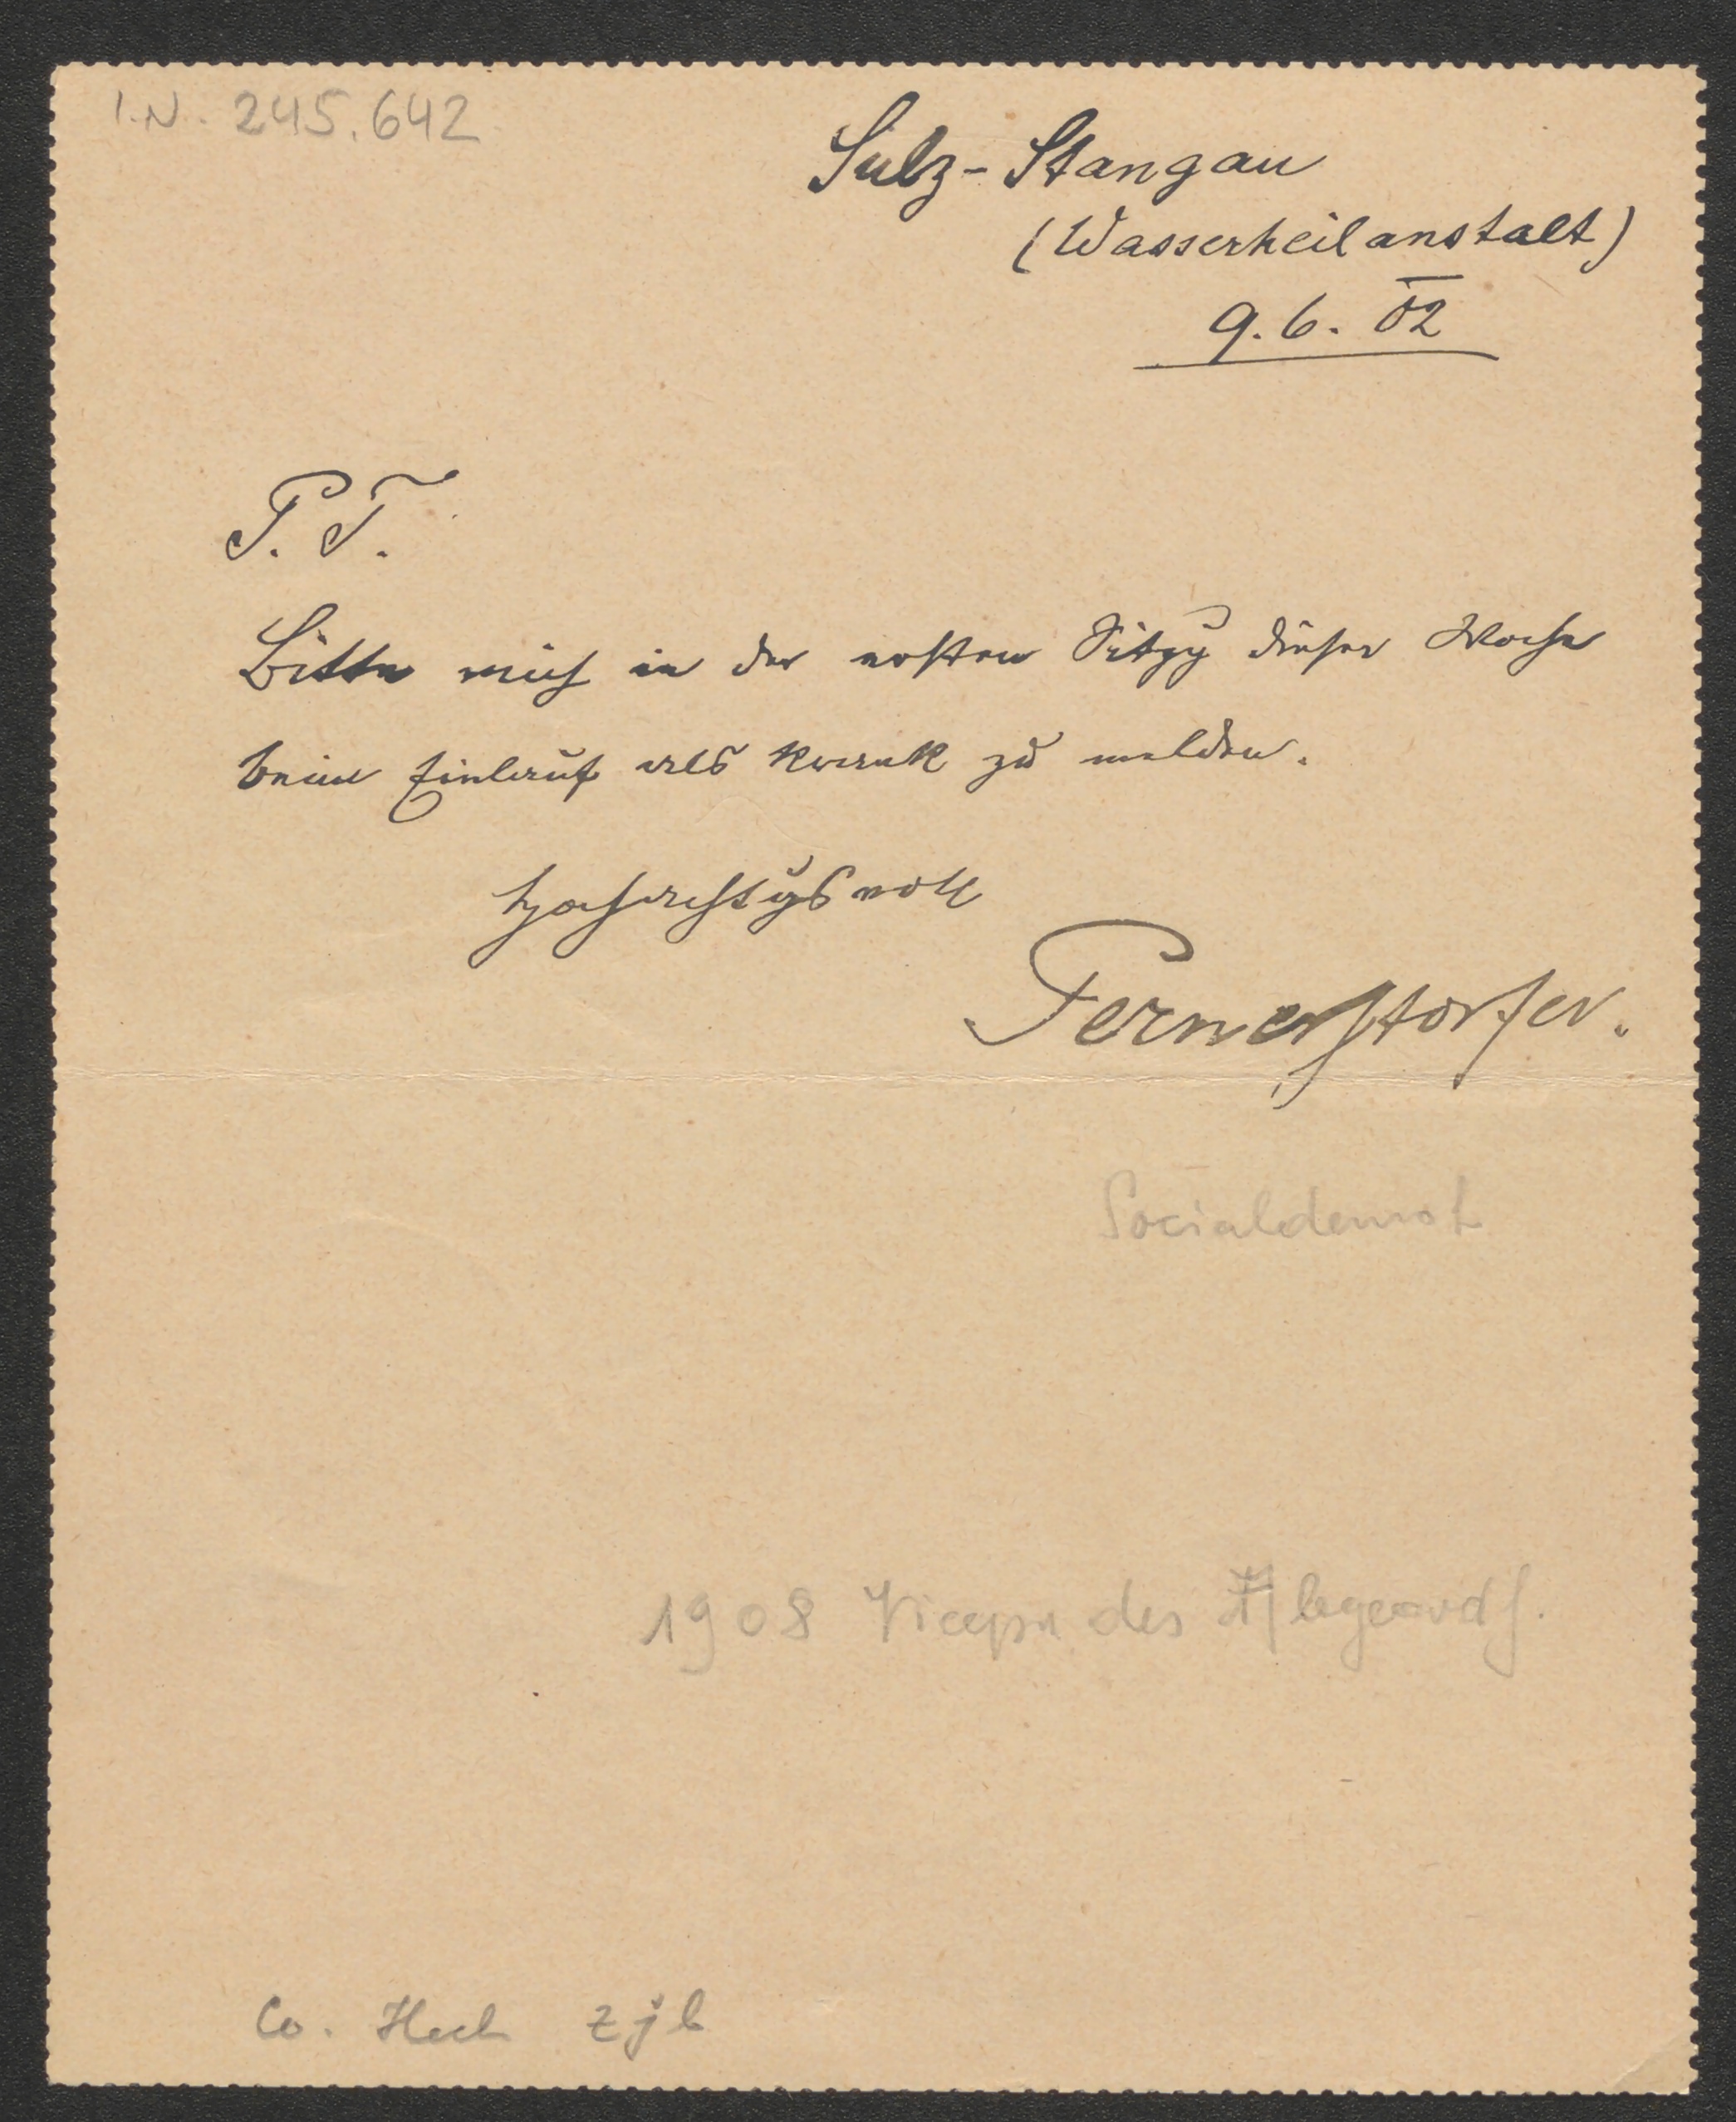 I.N. 245.642
Sulz-Stangau
(Wasserheilanstalt)
9.6. 02
P. T.
Bitte mich in der ersten Sitzg dieser Woche
beim Einlauf als krank zu melden.
Hochachtgsvoll
Pernerstorfer.
Socialdemok
1908 Vicepr des Abgeordh.
Co.